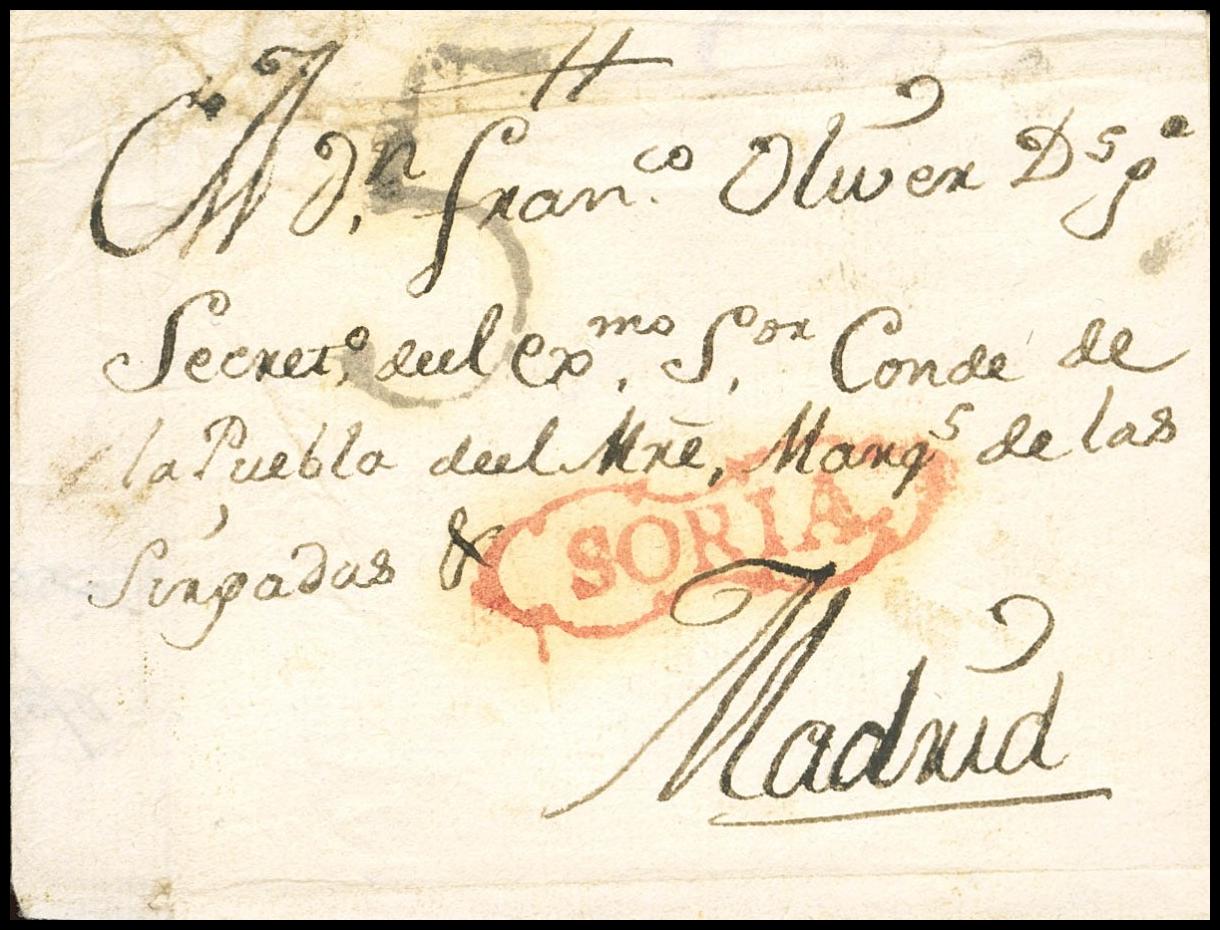 A d.n Fran.co Oliver Ds gª
Secret.o del exmo. S.or Conde de
la Puebla del Mrẽ, Marqs de las
&
SORIA
Madrid